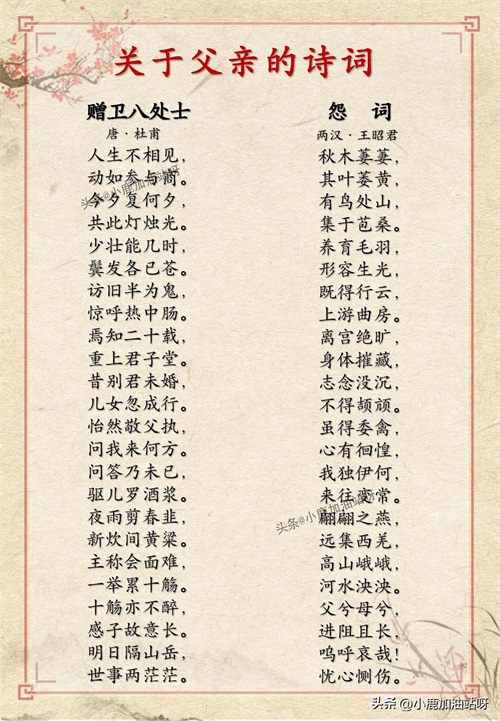 关于父亲的诗词
赠卫八处士
唐·杜甫
人生不相见，
动如参与商。
今夕复何夕，
共此灯烛光。
少壮能几时，
鬓发各已苍。
访旧半为鬼，
惊呼热中肠。
焉知二十载，
重上君子堂。
昔别君未婚，
儿女忽成行。
怡然敬父执，
问我来何方。
问答乃未已，
驱儿罗酒浆。
夜雨剪春韭，
新炊间黄粱。
主称会面难，
一举累十觞。
十觞亦不醉，
感子故意长。
明日隔山岳，
世事两茫茫。
怨 词
两汉·王昭君
秋木萋萋，
其叶萎黄，
有鸟处山，
集于苞桑。
养育毛羽，
形容生光，
既得行云，
上游曲房。
离宫绝旷，
身体摧藏，
志念没沉，
不得颉颃。
虽得委禽，
心有徊惶，
我独伊何，
来往变常。
翩翩之燕，
远集西羌，
高山峨峨，
河水泱泱。
父兮母兮，
进阻且长，
呜呼哀哉！
忧心恻伤。
头条@小鹿加油站呀
头条@小鹿加油站呀
头条 @小鹿加油站呀